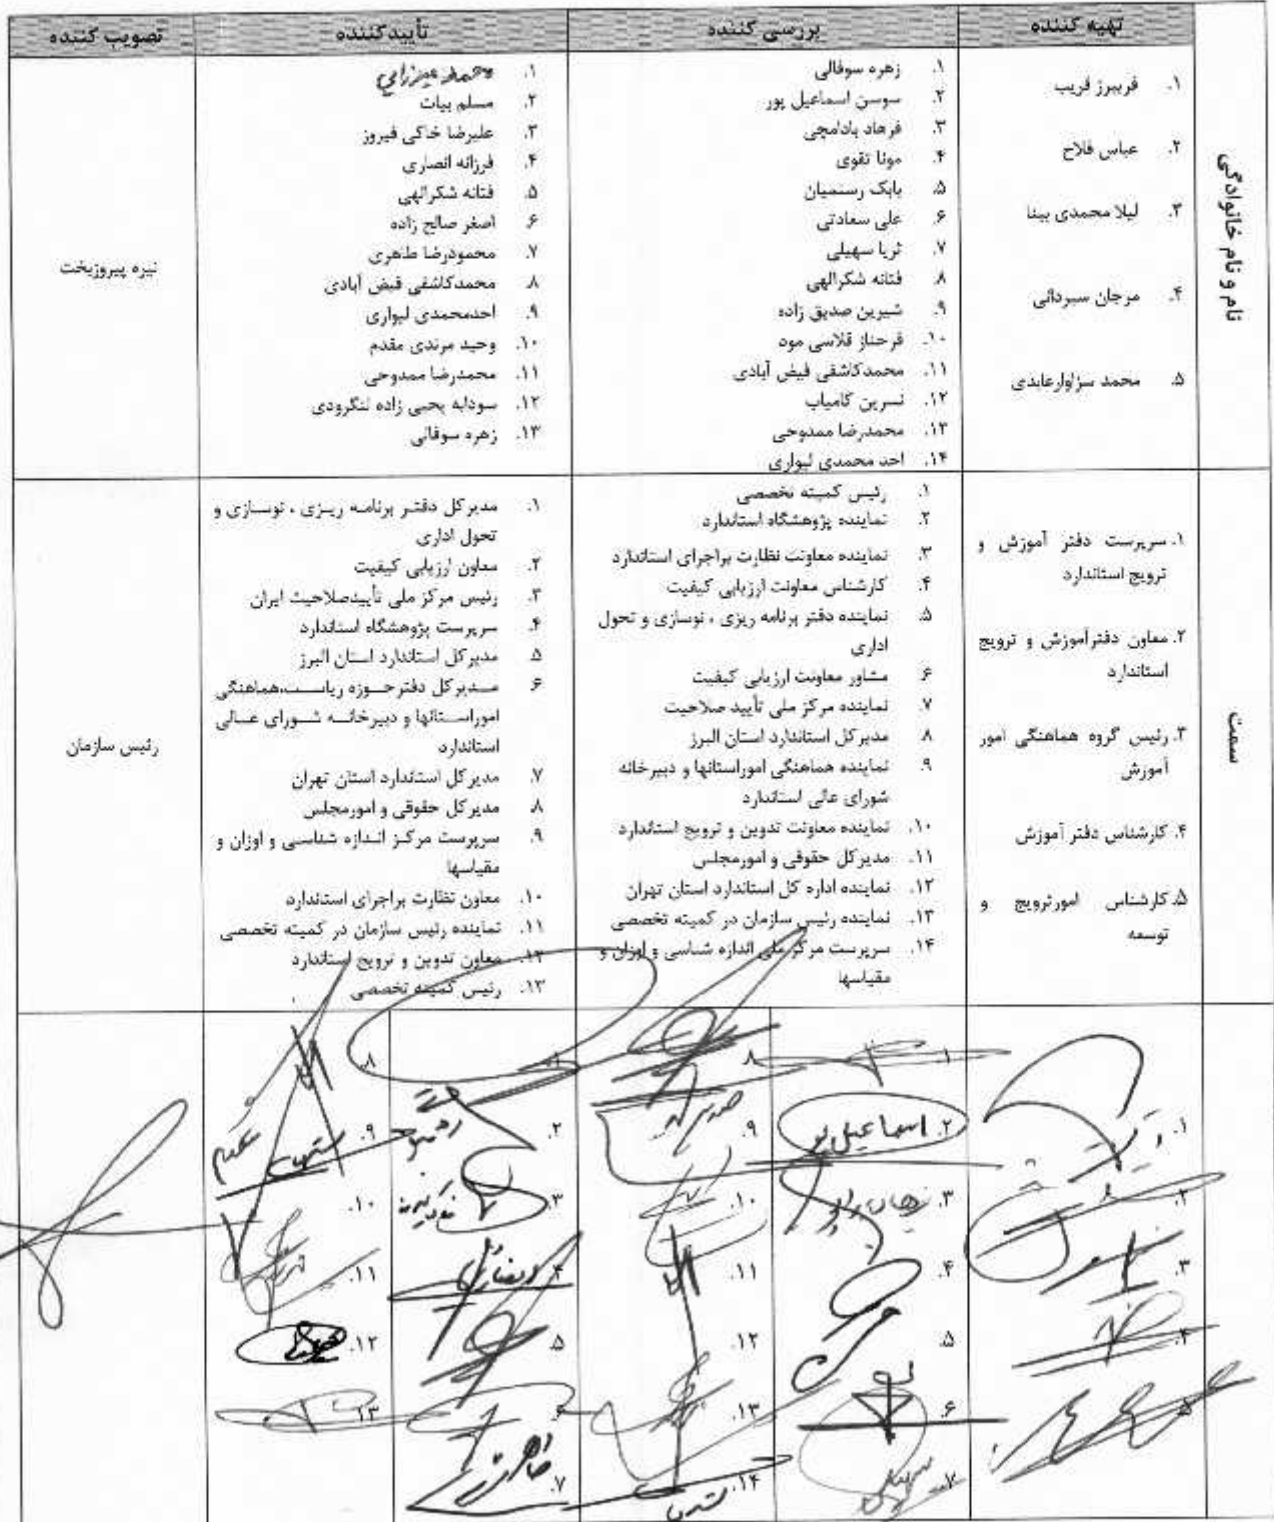 تهیه کننده
بررسی کننده
تأیید کننده
تصویب کننده
نام و نام خانوادگی
۱. فریبرز قریب
۲. عباس فلاح
۳. لیلا محمدی بینا
۴. مرجان سیردانی
۵. محمد سزاوارعابدی
۱. زهره سوفالی
۲. سوسن اسماعیل پور
۳. فرهاد بادامچی
۴. مونا تقوی
۵. بابک رستمیان
۶. علی سعادتی
۷. ثریا سهیلی
۸. فتانه شکرالهی
۹. شیرین صدیق زاده
۱۰. فرحناز قلاسی مود
۱۱. محمدکاشفی فیض آبادی
۱۲. نسرین کامیاب
۱۳. محمدرضا ممدوحی
۱۴. احد محمدی لیواری
۱. محمد میرزایی
۲. مسلم بیات
۳. علیرضا خاکی فیروز
۴. فرزانه انصاری
۵. فتانه شکرالهی
۶. اصغر صالح زاده
۷. محمودرضا طاهری
۸. محمدکاشفی فیض آبادی
۹. احدمحمدی لیواری
۱۰. وحید مرندی مقدم
۱۱. محمدرضا ممدوحی
۱۲. سودابه یحیی زاده لنگرودی
۱۳. زهره سوفالی
نیره پیروزبخت
سمت
۱. سرپرست دفتر آموزش و
ترویج استاندارد
۲. معاون دفترآموزش و ترویج
استاندارد
۳. رئیس گروه هماهنگی امور
آموزش
۴. کارشناس دفتر آموزش
۵. کارشناس امورترویج و
توسعه
۱. رئیس کمیته تخصصی
۲. نماینده پژوهشگاه استاندارد
۳. نماینده معاونت نظارت براجرای استاندارد
۴. کارشناس معاونت ارزیابی کیفیت
۵. نماینده دفتر برنامه ریزی ، نوسازی و تحول
اداری
۶. مشاور معاونت ارزیابی کیفیت
۷. نماینده مرکز ملی تأیید صلاحیت
۸. مدیرکل استاندارد استان البرز
۹. نماینده هماهنگی اموراستانها و دبیرخانه
شورای عالی استاندارد
۱۰. نماینده معاونت تدوین و ترویج استاندارد
۱۱. مدیرکل حقوقی و امورمجلس
۱۲. نماینده اداره کل استاندارد استان تهران
۱۳. نماینده رئیس سازمان در کمیته تخصصی
۱۴. سرپرست مرکز ملی اندازه شناسی و اوزان و
مقیاسها
۱. مدیرکل دفتر برنامه ریزی ، نوسازی و
تحول اداری
۲. معاون ارزیابی کیفیت
۳. رئیس مرکز ملی تأییدصلاحیت ایران
۴. سرپرست پژوهشگاه استاندارد
۵. مدیرکل استاندارد استان البرز
۶. مدیرکل دفترحوزه ریاست،هماهنگی
اموراستانها و دبیرخانه شورای عالی
استاندارد
۷. مدیرکل استاندارد استان تهران
۸. مدیرکل حقوقی و امورمجلس
۹. سرپرست مرکز اندازه شناسی و اوزان و
مقیاسها
۱۰. معاون نظارت براجرای استاندارد
۱۱. نماینده رئیس سازمان در کمیته تخصصی
۱۲. معاون تدوین و ترویج استاندارد
۱۳. رئیس کمیته تخصصی
رئیس سازمان
۱.
۲.
۳.
۴.
۵.
۱.
۲. اسماعیل پور
۳.
۴.
۵.
۶.
۷. سهیلی
۸.
۹.
۱۰.
۱۱.
۱۲.
۱۳.
۱۴.
۱.
۲.
۳.
۴. انصاری
۵.
۶.
۷. طاهری
۸.
۹.
۱۰.
۱۱.
۱۲.
۱۳.